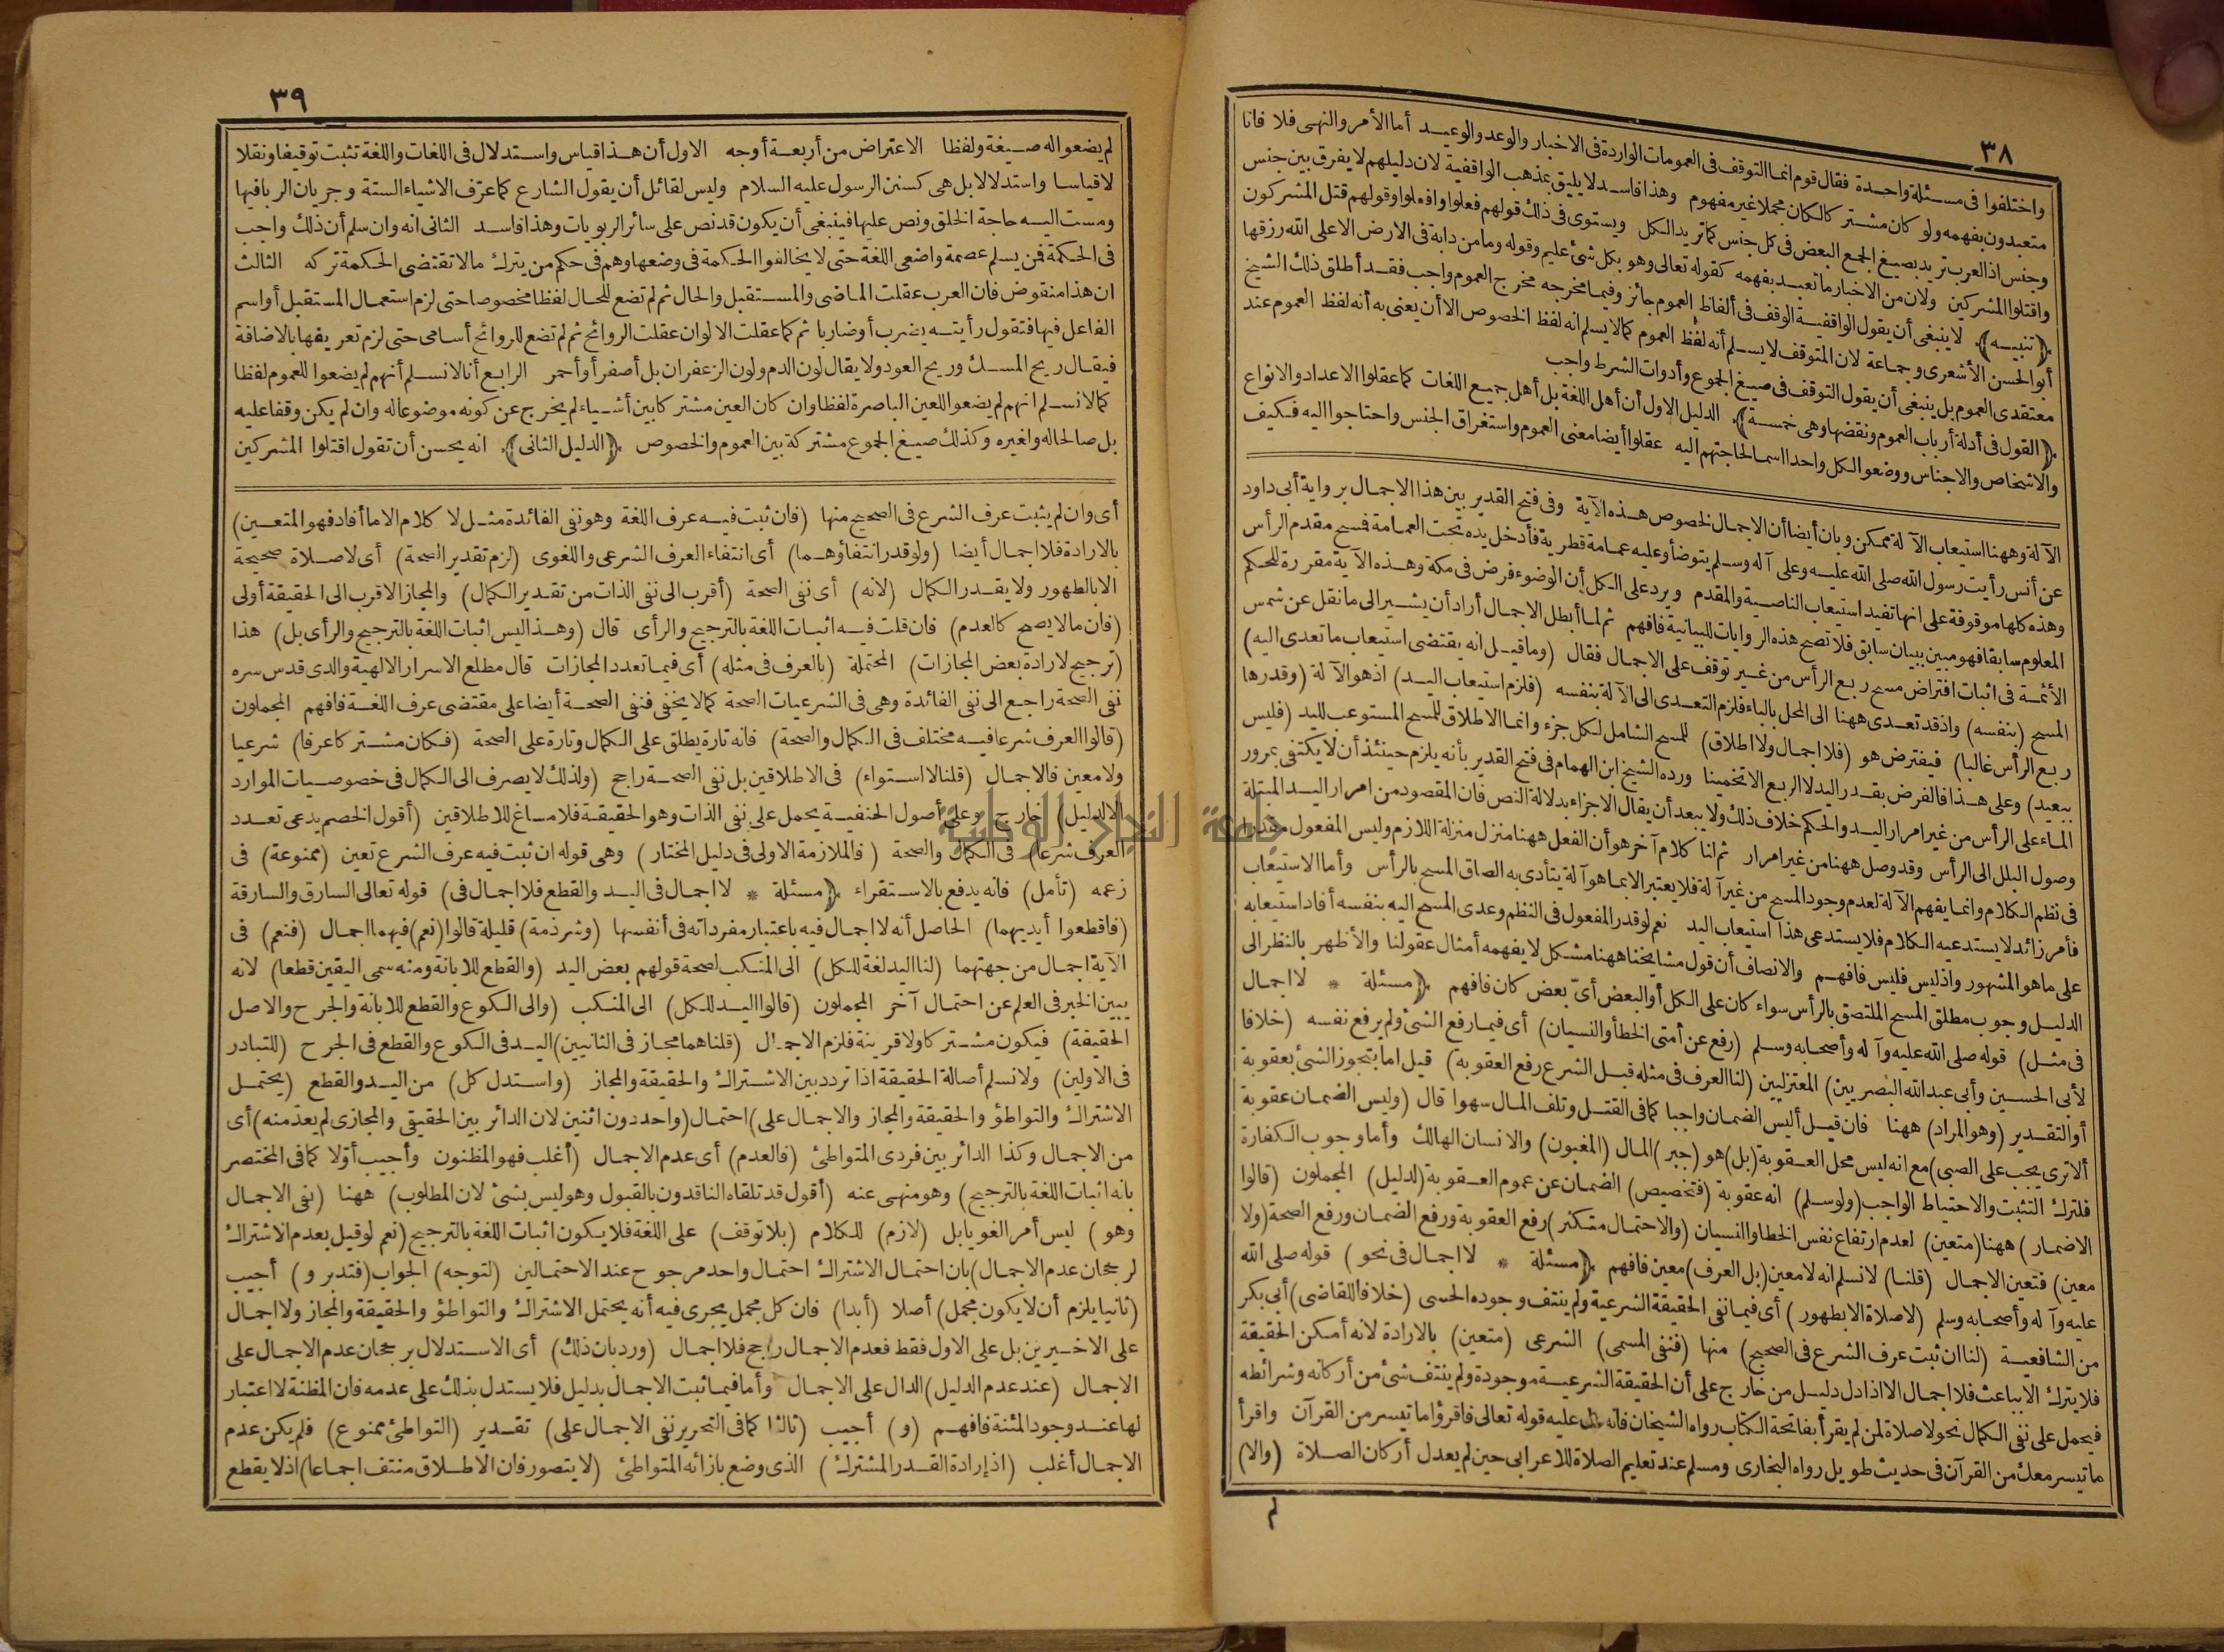 ٣٨
واختلفوا فى مسئلة واحدة فقال قوم انما التوقف فى العمومات الواردة فى الاخبار والوعد والوعيد أما الأمر والنهى فلا فانا
متعبدون بفهمه ولو كان مشتركا لكان مجملا غير مفهوم وهذا فاسد لا يليق بمذهب الواقفية لان دليلهم لا يفرق بين جنس
وجنس اذ العرب تريد بصيغ الجمع البعض فى كل جنس كما تريد الكل ويستوى فى ذلك قولهم فعلوا وافعلوا وقولهم قتل المشركون
واقتلوا المشركين ولان من الاخبار ما تعبد بفهمه كقوله تعالى وهو بكل شئ عليم وقوله وما من دابة فى الارض الا على الله رزقها
﴿تنبيه﴾ لا ينبغى أن يقول الواقفية الوقف فى ألفاظ العموم جائز وفيما مخرجه مخرج العموم واجب فقد أطلق ذلك الشيخ
أبو الحسن الأشعرى وجماعة لان المتوقف لا يسلم أنه لفظ العموم كما لا يسلم انه لفظ الخصوص الا أن يعنى به أنه لفظ العموم عند
معتقدى العموم بل ينبغى أن يقول التوقف فى صيغ الجموع وأدوات الشرط واجب
﴿القول فى أدلة أرباب العموم ونقضها وهى خمسة﴾ الدليل الاول أن أهل اللغة بل أهل جميع اللغات كما عقلوا الاعداد والانواع
والاشخاص والاجناس ووضعوا لكل واحد اسما لحاجتهم اليه عقلوا أيضا معنى العموم واستغراق الجنس واحتاجوا اليه فكيف
الآلة وههنا استيعاب الآلة ممكن وبان أيضا أن الاجمال لخصوص هذه الآية وفى فتح القدير بين هذا الاجمال برواية أبى داود
عن أنس رأيت رسول الله صلى الله عليه وعلى آله وسلم يتوضأ وعليه عمامة قطرية فأدخل يده تحت العمامة فمسح مقدم الرأس
وهذه كلها موقوفة على انها تفيد استيعاب الناصية والمقدم ويرد على الكل أن الوضوء فرض فى مكة وهذه الآية مقررة للحكم
المعلوم سابقا فهو مبين ببيان سابق فلا تصح هذه الروايات للبيانية فافهم ثم لما أبطل الاجمال أراد أن يشير الى ما نقل عن شمس
الأئمة فى اثبات افتراض مسح ربع الرأس من غير توقف على الاجمال فقال (وما قيل انه يقتضى استيعاب ما تعدى اليه)
المسح (بنفسه) واذ قد تعدى ههنا الى المحل بالباء فلزم التعدى الى الآلة بنفسه (فلزم استيعاب اليد) اذ هو الآلة (وقدرها
ربع الرأس غالبا) فيفترض هو (فلا اجمال ولا اطلاق) للمسح الشامل لكل جزء وانما الاطلاق للمسح المستوعب لليد (فليس
ببعيد) وعلى هذا فالفرض بقدر اليد لا الربع الا تخمينا ورده الشيخ ابن الهمام فى فتح القدير بأنه يلزم حينئذ أن لا يكتفى بمرور
الماء على الرأس من غير امرار اليد والحكم خلاف ذلك ولا يبعد أن يقال الاجزاء بدلالة النص فان المقصود من امرار اليد المبتلة
وصول البلل الى الرأس وقد وصل ههنا من غير امرار ثم لنا كلام آخر هو أن الفعل ههنا منزل منزلة اللازم وليس المفعول مقدرا
فى نظم الكلام وانما يفهم الآلة لعدم وجود المسح من غير آلة فلا يعتبر الا بما هو آلة يتأدى به الصاق المسح بالرأس وأما الاستيعاب
فأمر زائد لا يستدعيه الكلام فلا يستدعى هذا استيعاب اليد نعم لو قدر المفعول فى النظم وعدى المسح اليه بنفسه أفاد استيعابه
على ما هو المشهور واذ ليس فليس فافهم والانصاف أن قول مشايخنا ههنا مشكل لا يفهمه أمثال عقولنا والأظهر بالنظر الى
الدليل وجوب مطلق المسح الملتصق بالرأس سواء كان على الكل أو البعض أىّ بعض كان فافهم ﴿مسئلة * لا اجمال
فى مثل) قوله صلى الله عليه وآله وأصحابه وسلم (رفع عن أمتى الخطأ والنسيان) أى فيما رفع الشئ ولم يرفع نفسه (خلافا
لأبى الحسين وأبى عبد الله البصريين) المعتزليين (لنا العرف فى مثله قبل الشرع رفع العقوبة) قيل اما بتجوز الشئ بعقوبة
أو التقدير (وهو المراد) ههنا فان قيل أليس الضمان واجبا كما فى القتل وتلف المال سهوا قال (وليس الضمان عقوبة
ألا ترى يجب على الصبى) مع انه ليس محل العقوبة (بل) هو (جبر) المال (المغبون) والانسان الهالك وأما وجوب الكفارة
فلترك التثبت والاحتياط الواجب (ولو سلم) انه عقوبة (فتخصيص) الضمان عن عموم العقوبة (لدليل) المجملون (قالوا
الاضمار) ههنا (متعين) لعدم ارتفاع نفس الخطا والنسيان (والاحتمال متكثر) رفع العقوبة ورفع الضمان ورفع الصحة (ولا
معين) فتعين الاجمال (قلنا) لا نسلم انه لا معين (بل العرف) معين فافهم ﴿مسئلة * لا اجمال فى نحو) قوله صلى الله
عليه وآله وأصحابه وسلم (لا صلاة الا بطهور) أى فيما نفى الحقيقة الشرعية ولم ينتف وجوده الحسى (خلافا للقاضى) أبى بكر
من الشافعية (لنا ان ثبت عرف الشرع فى الصحيح) منها (فنفى المسمى) الشرعى (متعين) بالارادة لانه أمكن الحقيقة
فلا يترك الا بباعث فلا اجمال الا اذا دل دليل من خارج على أن الحقيقة الشرعية موجودة ولم ينتف شئ من أركانه وشرائطه
فيحمل على نفى الكمال نحو لا صلاة لمن لم يقرأ بفاتحة الكتاب رواه الشيخان فانه دل عليه قوله تعالى فاقرؤا ما تيسر من القرآن واقرأ
ما تيسر معك من القرآن فى حديث طويل رواه البخارى ومسلم عند تعليم الصلاة للاعرابى حين لم يعدل أركان الصلاة (والا)
٣٩
لم يضعوا له صيغة ولفظا الاعتراض من أربعة أوجه الاول أن هذا قياس واستدلال فى اللغات واللغة تثبت توقيفا ونقلا
لا قياسا واستدلالا بل هى كسنن الرسول عليه السلام وليس لقائل أن يقول الشارع كما عرّف الاشياء الستة وجريان الربا فيها
ومست اليه حاجة الخلق ونص عليها فينبغى أن يكون قد نص على سائر الربويات وهذا فاسد الثانى انه وان سلم أن ذلك واجب
فى الحكمة فمن يسلم عصمة واضعى اللغة حتى لا يخالفوا الحكمة فى وضعها وهم فى حكم من يترك ما لا تقتضى الحكمة تركه الثالث
ان هذا منقوض فان العرب عقلت الماضى والمستقبل والحال ثم لم تضع للحال لفظا مخصوصا حتى لزم استعمال المستقبل أو اسم
الفاعل فيها فتقول رأيته يضرب أو ضاربا ثم كما عقلت الالوان عقلت الروائح ثم لم تضع للروائح أسامى حتى لزم تعريفها بالاضافة
فيقال ريح المسك وريح العود ولا يقال لون الدم ولون الزعفران بل أصفر أو أحمر الرابع أنا لا نسلم أنهم لم يضعوا للعموم لفظا
كما لا نسلم انهم لم يضعوا للعين الباصرة لفظا وان كان العين مشتركا بين أشياء لم يخرج عن كونه موضوعا له وان لم يكن وقفا عليه
بل صالحا له ولغيره وكذلك صيغ الجموع مشتركة بين العموم والخصوص ﴿الدليل الثانى﴾ انه يحسن أن تقول اقتلوا المشركين
أى وان لم يثبت عرف الشرع فى الصحيح منها (فان ثبت فيه عرف اللغة وهو نفى الفائدة مثل لا كلام الا ما أفاد فهو المتعين)
بالارادة فلا اجمال أيضا (ولو قدر انتفاؤهما) أى انتفاء العرف الشرعى واللغوى (لزم تقدير الصحة) أى لا صلاة صحيحة
الا بالطهور ولا يقدر الكمال (لانه) أى نفى الصحة (أقرب الى نفى الذات من تقدير الكمال) والمجاز الاقرب الى الحقيقة أولى
(فان ما لا يصح كالعدم) فان قلت فيه اثبات اللغة بالترجيح والرأى قال (وهذا ليس اثبات اللغة بالترجيح والرأى بل) هذا
(ترجيح لارادة بعض المجازات) المحتملة (بالعرف فى مثله) أى فيما تعدد المجازات قال مطلع الاسرار الالهية والدى قدس سره
نفى الصحة راجع الى نفى الفائدة وهى فى الشرعيات الصحة كما لا يخفى فنفى الصحة أيضا على مقتضى عرف اللغة فافهم المجملون
(قالوا العرف شرعا فيه مختلف فى الكمال والصحة) فانه تارة يطلق على الكمال وتارة على الصحة (فكان مشتركا عرفا) شرعيا
ولا معين فالاجمال (قلنا لا استواء) فى الاطلاقين بل نفى الصحة راجح (ولذلك لا يصرف الى الكمال فى خصوصيات الموارد
الا لدليل) خارج وعلى أصول الحنفية يحمل على نفى الذات وهو الحقيقة فلا مساغ للاطلاقين (أقول الخصم يدعى تعدد
العرف شرعا) فى الكمال والصحة (فالملازمة الاولى فى دليل المختار) وهى قوله ان ثبت فيه عرف الشرع تعين (ممنوعة) فى
زعمه (تأمل) فانه يدفع بالاستقراء ﴿مسئلة * لا اجمال فى اليد والقطع فلا اجمال فى) قوله تعالى السارق والسارقة
(فاقطعوا أيديهما) الحاصل أنه لا اجمال فيه باعتبار مفرداته فى أنفسها (وشرذمة) قليلة قالوا (نعم) فيهما اجمال (فنعم) فى
الآية اجمال من جهتهما (لنا اليد لغة للكل) الى المنكب لصحة قولهم بعض اليد (والقطع للابانة ومنه سمى اليقين قطعا) لانه
يبين الخبر فى العلم عن احتمال آخر المجملون (قالوا اليد للكل) الى المنكب (والى الكوع والقطع للابانة والجرح والاصل
الحقيقة) فيكون مشتركا ولا قرينة فلزم الاجمال (قلنا هما مجاز فى الثانيين) اليد فى الكوع والقطع فى الجرح (للتبادر
فى الاولين) ولا نسلم أصالة الحقيقة اذا تردد بين الاشتراك والحقيقة والمجاز (واستدل كل) من اليد والقطع (يحتمل
الاشتراك والتواطؤ والحقيقة والمجاز والاجمال على) احتمال (واحد دون اثنين لان الدائر بين الحقيقى والمجازى لم يعدّ منه) أى
من الاجمال وكذا الدائر بين فردى المتواطئ (فالعدم) أى عدم الاجمال (أغلب فهو المظنون وأجيب أوّلا كما فى المختصر
بانه اثبات اللغة بالترجيح) وهو منهى عنه (أقول قد تلقاه الناقدون بالقبول وهو ليس بشئ لان المطلوب) ههنا (نفى الاجمال
وهو) ليس أمر الغويا بل (لازم) للكلام (بلا توقف) على اللغة فلا يكون اثبات اللغة بالترجيح (نعم لو قيل بعدم الاشتراك
لرجحان عدم الاجمال) بان احتمال الاشتراك احتمال واحد مرجوح عند الاحتمالين (لتوجه) الجواب (فتدبر و) أجيب
(ثانيا يلزم أن لا يكون مجمل) أصلا (أبدا) فان كل مجمل يجرى فيه أنه يحتمل الاشتراك والتواطؤ والحقيقة والمجاز ولا اجمال
على الاخيرين بل على الاول فقط فعدم الاجمال راجح فلا اجمال (ورد بان ذلك) أى الاستدلال برجحان عدم الاجمال على
الاجمال (عند عدم الدليل) الدال على الاجمال وأما فيما ثبت الاجمال بدليل فلا يستدل بذلك على عدمه فان المظنة لا اعتبار
لها عند وجود المئنة فافهم (و) أجيب (ثالثا كما فى التحرير نفى الاجمال على) تقدير (التواطئ ممنوع) فلم يكن عدم
الاجمال أغلب (اذ إرادة القدر المشترك) الذى وضع بازائه المتواطئ (لا يتصور فان الاطلاق منتف اجماعا) اذ لا يقطع
جامعة النجاح الوطنية